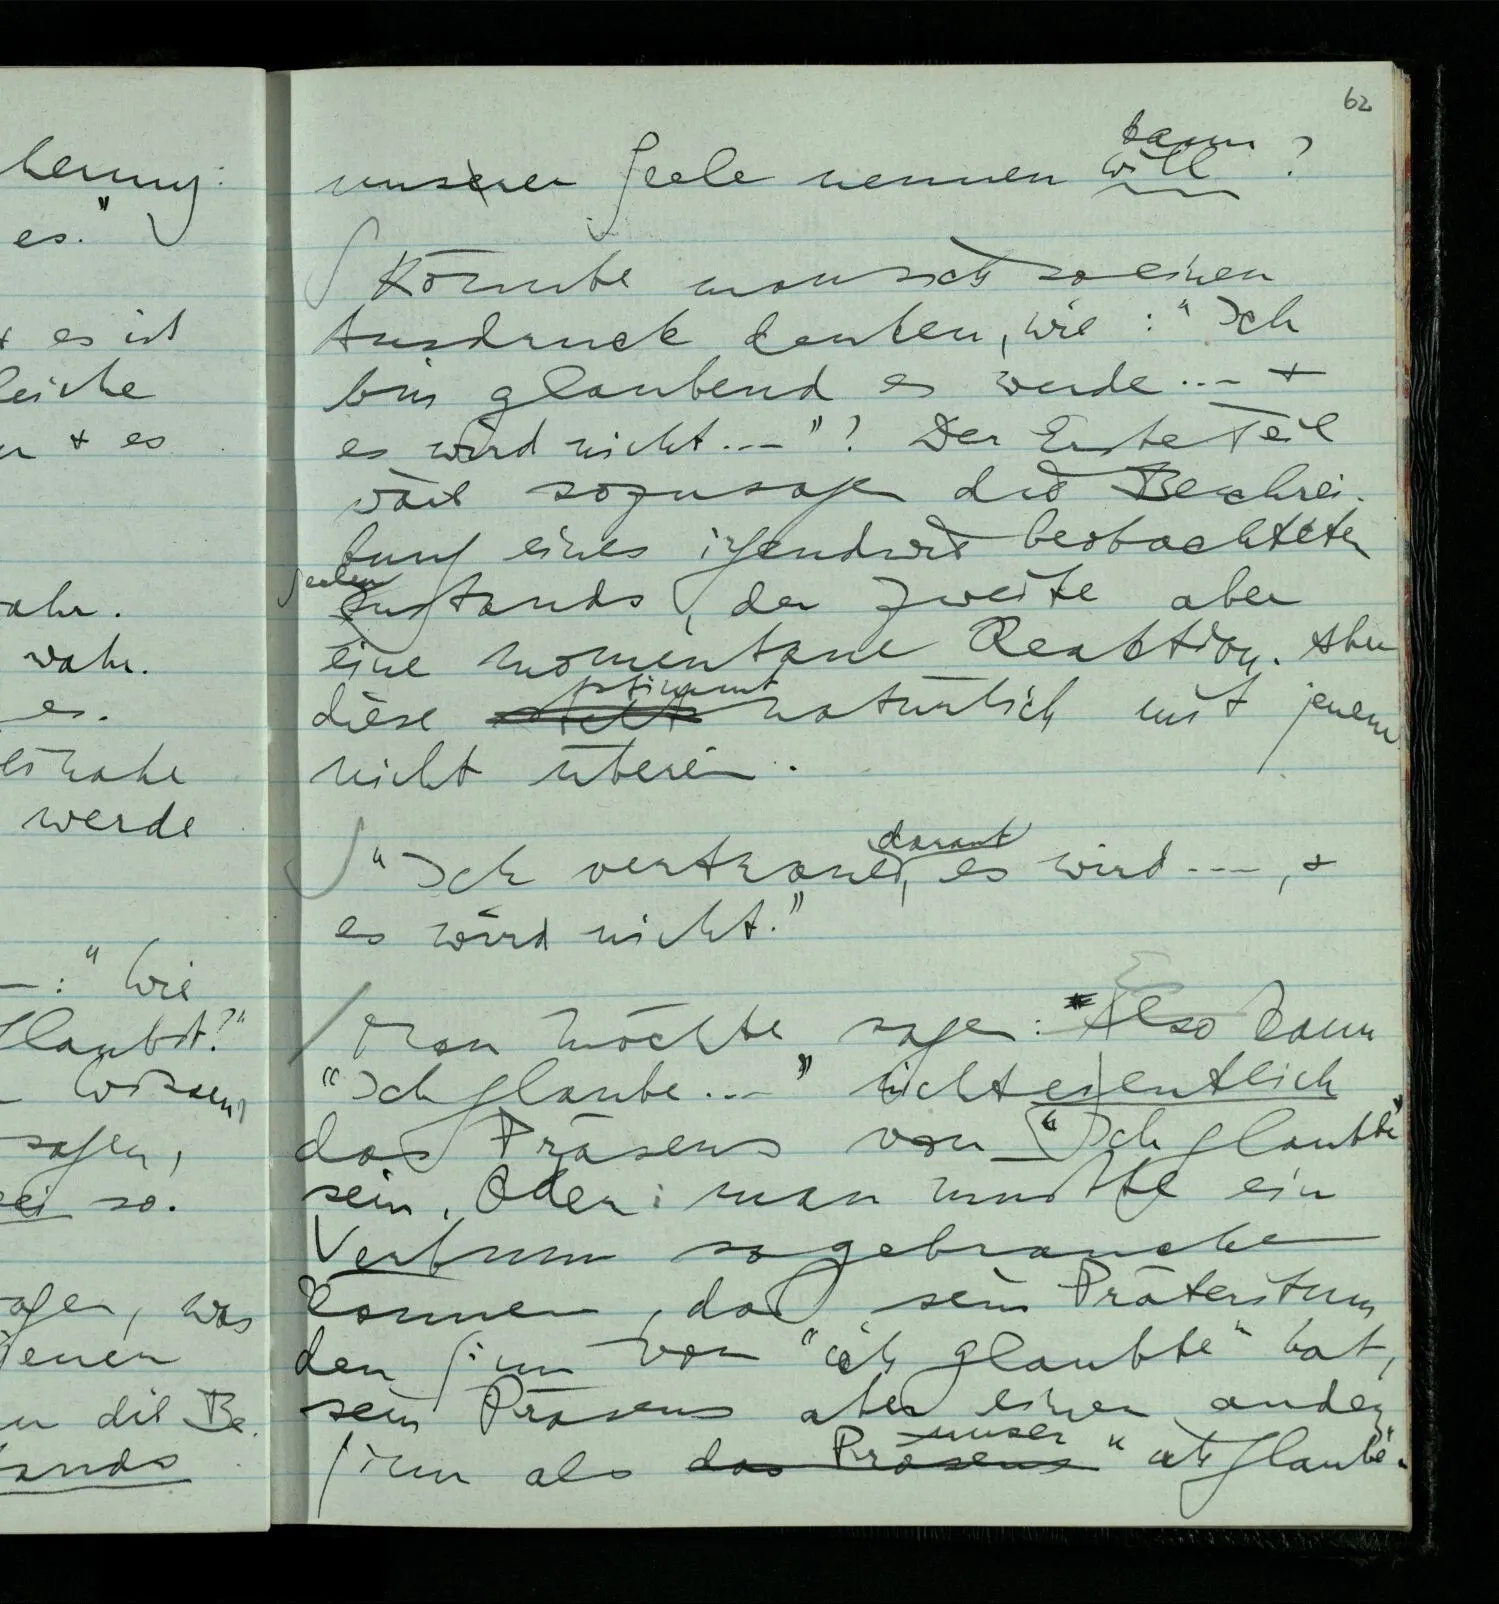 herung:
es."
+ es ist
leiche
n + es
ahr.
wahr.
es.
beinahe
werde
—:" Wie
glaubst?"
wissen,
sagen,
sei so.
sagen, was
jenen
die Be-
ands
62
kann
unserer Seele nennen will ?
Könnte man sich so einen
Ausdruck denken, wie : "Ich
bin glaubend es werde ... +
es wird nicht..."? Der Erste Teil
wäre sozusagen die Beschrei-
bung eines irgendwie beobachteten
Seelen
zustands, der zweite aber
eine momentane Reaktion. Aber
stimmt
diese natürlich mit jenem
nicht überein.
darauf
"Ich vertraue, es wird ..., +
es wird nicht."
Man möchte sagen: Also kann
"Ich glaube ..." nicht eigentlich
das Präsens von "Ich glaubte"
sein. Oder: man müßte ein
Verbum so gebrauchen
können, daß sein Präteritum
den Sinn von "ich glaubte" hat,
sein Präsens aber einen andern
unser
Sinn als das Präsens "ich glaube".